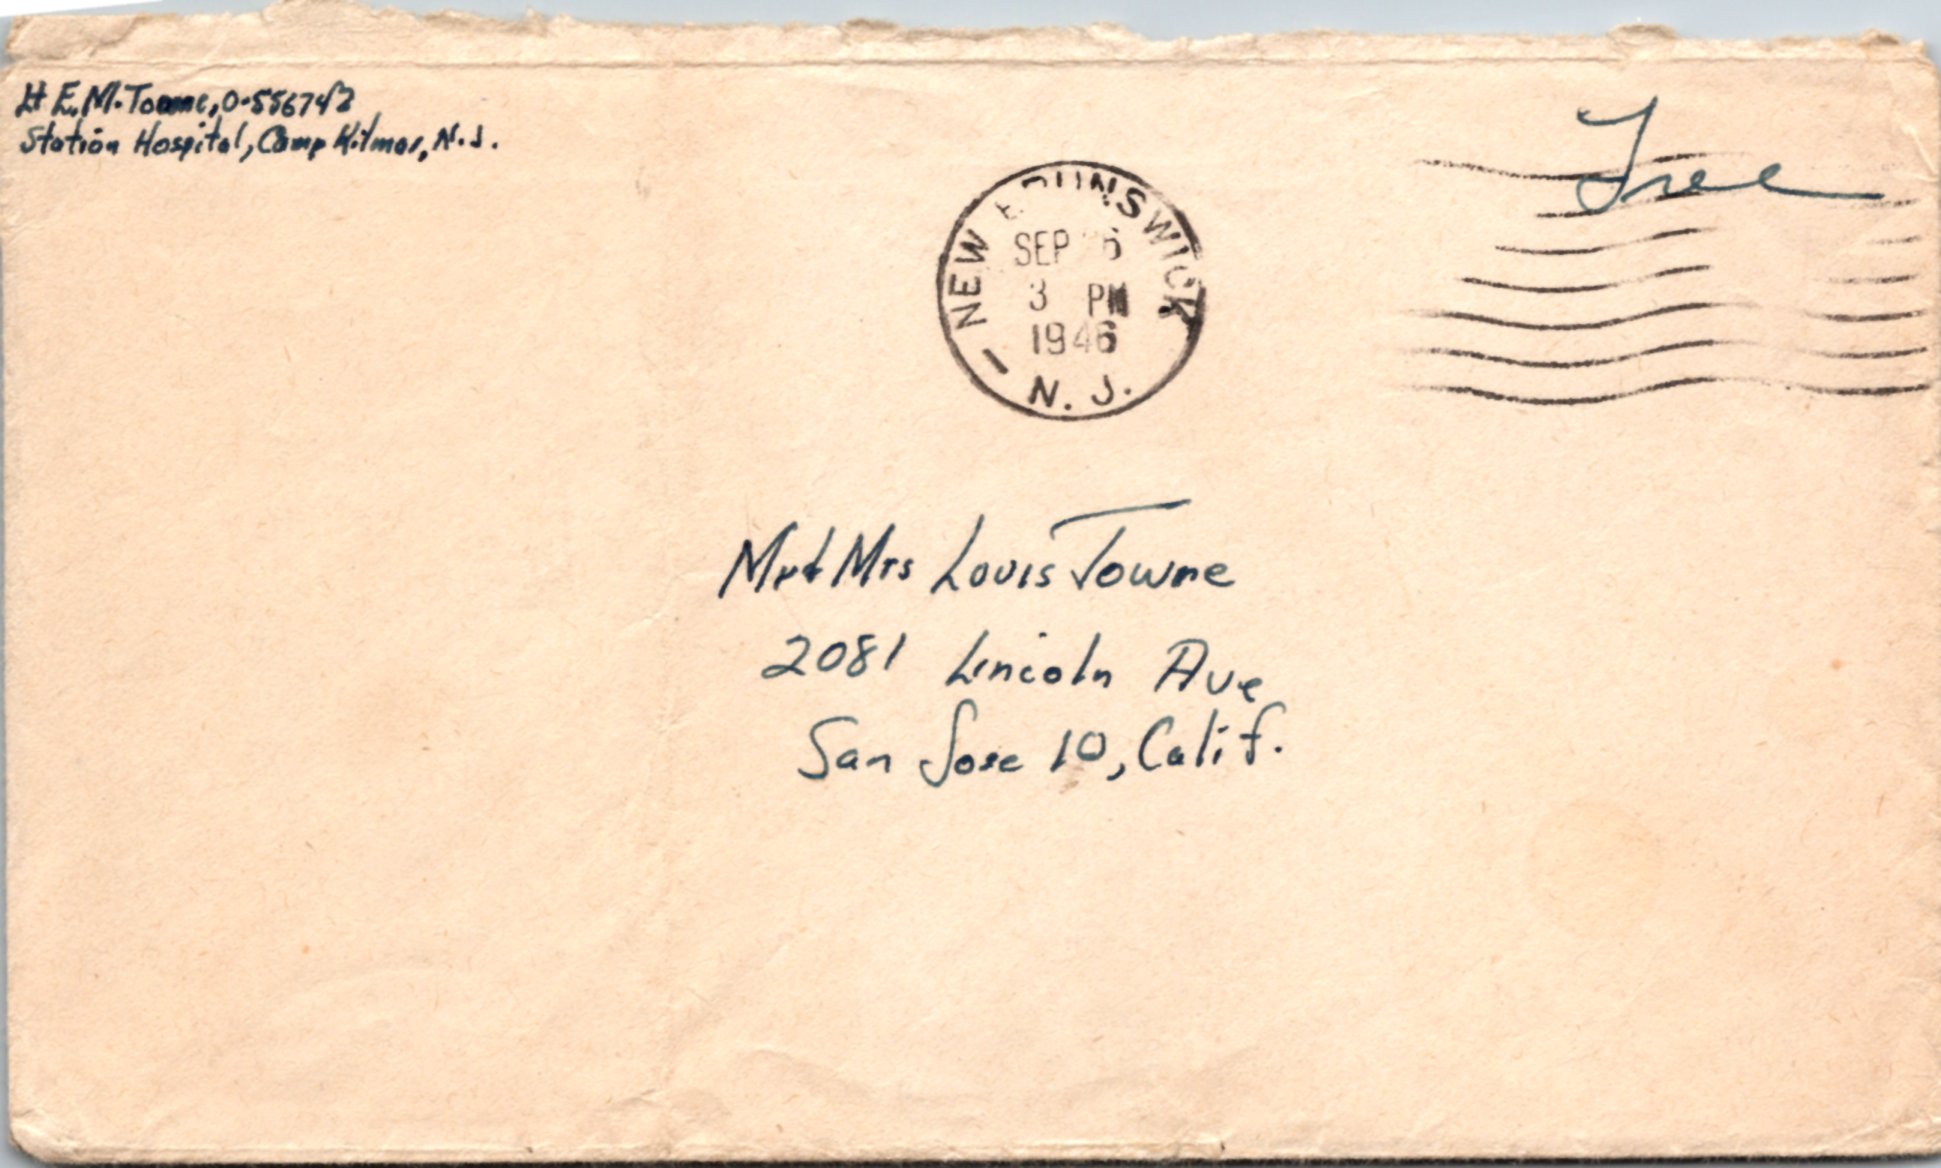 Lt E.M. Towne, O-556742
Station Hospital, Camp Kilmer, N.J.
Free
NEW BRUNSWICK
SEP 6
3 PM
1946
N. J.
Mr & Mrs Louis Towne
2081 Lincoln Ave
San Jose 10, Calif.